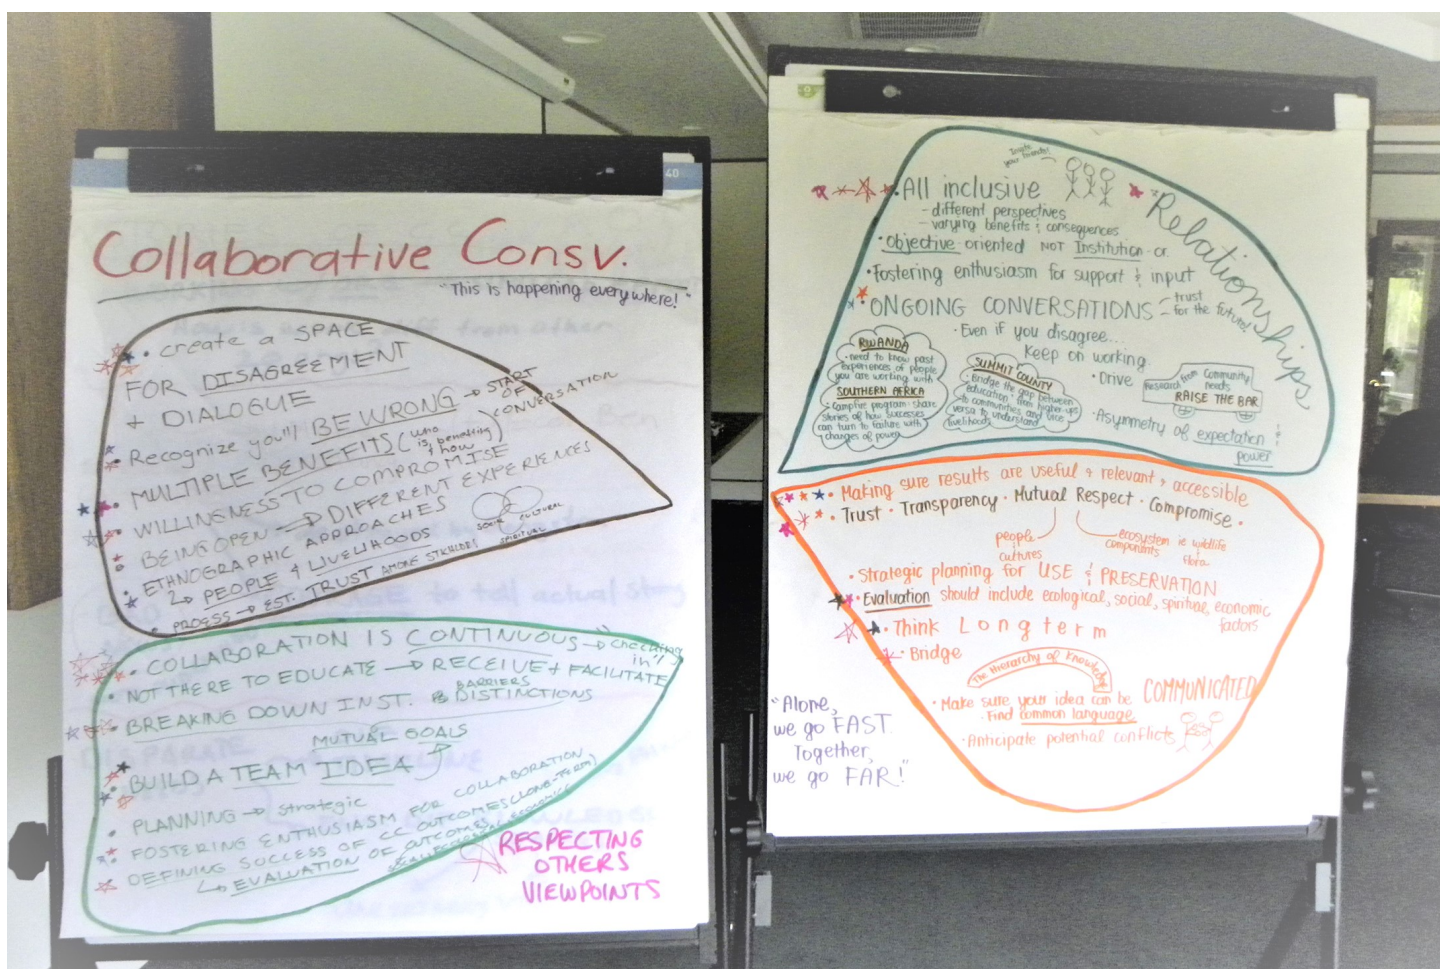 40
Collaborative Consv.
"This is happening everywhere!"
• create a SPACE
FOR DISAGREEMENT
+ DIALOGUE
• Recognize you'll BE WRONG → START OF CONVERSATION
• MULTIPLE BENEFITS (who is benefiting + how)
• WILLINGNESS TO COMPROMISE
• BEING OPEN → DIFFERENT EXPERIENCES
• ETHNOGRAPHIC APPROACHES
↳ PEOPLE & LIVELIHOODS
SOCIAL CULTURAL
SPIRITUAL
• PROCESS → EST. TRUST AMONG
• COLLABORATION IS CONTINUOUS → "checking in"
• NOT THERE TO EDUCATE → RECEIVE + FACILITATE
• BREAKING DOWN INST. BARRIERS & DISTINCTIONS
MUTUAL GOALS
• BUILD A TEAM IDEA
• PLANNING → strategic
• FOSTERING ENTHUSIASM FOR COLLABORATION
• DEFINING SUCCESS OF CC OUTCOMES (LONG-TERM)
↳ EVALUATION OF OUTCOMES
RESPECTING
OTHERS
VIEWPOINTS
9
Invite
your friends!
Relationships
• All inclusive
- different perspectives
- varying benefits & consequences
• Objective-oriented NOT Institution-or.
• Fostering enthusiasm for support & input
• ONGOING CONVERSATIONS - trust
for the future!
• Even if you disagree....
Keep on working.
RWANDA
• need to know past
experiences of people
you are working with
SOUTHERN AFRICA
• Campfire program-share
stories of how successes
can turn to failure with
changes of power
SUMMIT COUNTY
• Bridge the gap between
education from higher-ups
to communities, and vice
versa to understand
livelihoods
• Drive
Research from Community
needs
RAISE THE BAR
• Asymmetry of expectation &
power
• Making sure results are useful & relevant & accessible
• Trust • Transparency • Mutual Respect • Compromise •
people
cultures
ecosystem ie wildlife
components flora
• Strategic planning for USE & PRESERVATION
• Evaluation should include ecological, social, spiritual, economic
factors
• Think Long term
• Bridge
The Hierarchy of Knowledge
• Make sure your idea can be COMMUNICATED
• Find common language
• Anticipate potential conflicts
"Alone,
we go FAST.
Together,
we go FAR!"